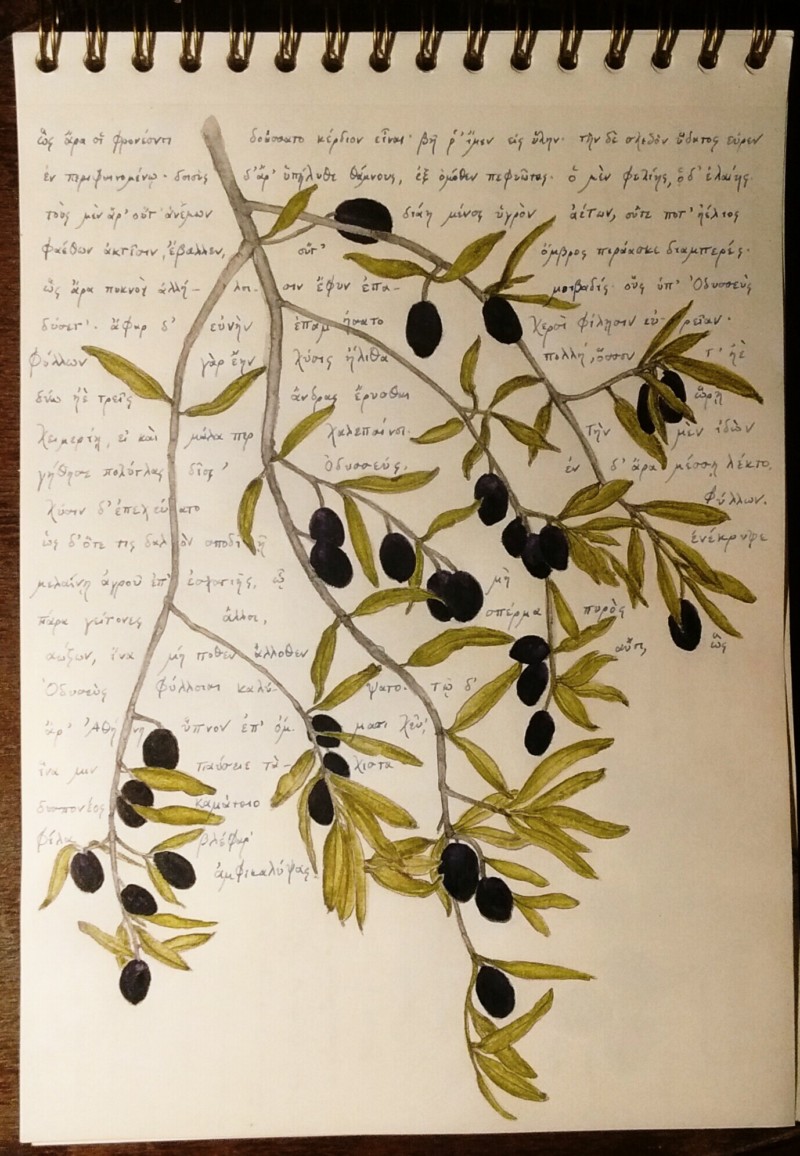 ὣς ἄρα οἱ φρονέοντι δοάσσατο κέρδιον εἶναι· βῆ ῥ' ἴμεν εἰς ὕλην· τὴν δὲ σχεδὸν ὕδατος εὗρεν
ἐν περιφαινομένῳ· δοιοὺς δ' ἄρ' ὑπήλυθε θάμνους, ἐξ ὁμόθεν πεφυῶτας· ὁ μὲν φυλίης, ὁ δ' ἐλαίης.
τοὺς μὲν ἄρ' οὔτ' ἀνέμων διάη μένος ὑγρὸν ἀέντων, οὔτε ποτ' ἠέλιος
φαέθων ἀκτῖσιν ἔβαλλεν, οὔτ' ὄμβρος περάασκε διαμπερές·
ὣς ἄρα πυκνοὶ ἀλλή- λοι- σιν ἔφυν ἐπα- μοιβαδίς· οὓς ὑπ' Ὀδυσσεὺς
δύσετ'· ἄφαρ δ' εὐνὴν ἐπαμήσατο χερσὶ φίλῃσιν εὐ- ρεῖαν·
φύλλων γὰρ ἔην χύσις ἤλιθα πολλή, ὅσσον τ' ἠὲ
δύω ἠὲ τρεῖς ἄνδρας ἔρυσθαι ὥρῃ
χειμερίῃ, εἰ καὶ μάλα περ χαλεπαίνοι. τὴν μὲν ἰδὼν
γήθησε πολύτλας δῖος Ὀδυσσεύς, ἐν δ' ἄρα μέσσῃ λέκτο,
χύσιν δ' ἐπεχεύατο φύλλων.
ὡς δ' ὅτε τις δαλὸν σποδιῇ ἐνέκρυψε
μελαίνῃ ἀγροῦ ἐπ' ἐσχατιῆς, ᾧ μὴ
πάρα γείτονες ἄλλοι, σπέρμα πυρὸς
σῴζων, ἵνα μή ποθεν ἄλλοθεν αὖοι, ὣς
Ὀδυσεὺς φύλλοισι καλύ- ψατο· τῷ δ'
ἄρ' Ἀθήνη ὕπνον ἐπ' ὄμ- μασι χεῦ',
ἵνα μιν παύσειε τά- χιστα
δυσπονέος καμάτοιο
φίλα βλέφαρ'
ἀμφικαλύψας.